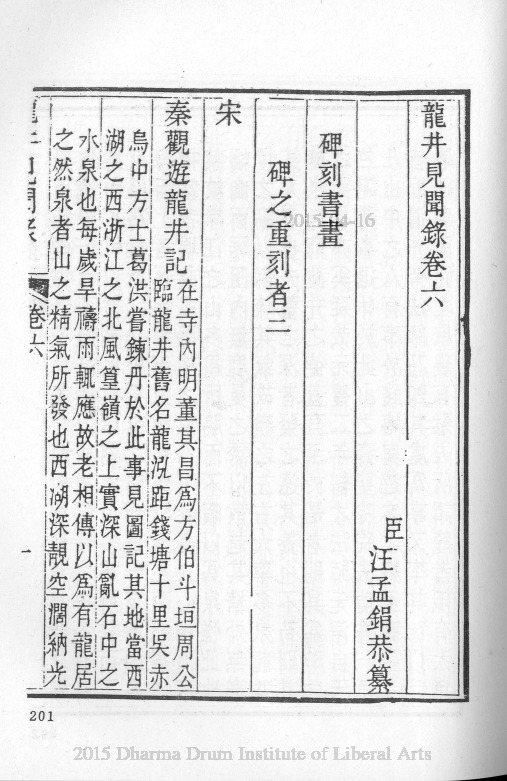 龍井見聞錄卷六
臣汪孟鋗恭纂
碑刻書畫
碑之重刻者三
宋
秦觀遊龍井記
在寺內明董其昌爲方伯斗垣周公
臨龍井舊名龍泓距錢塘十里吳赤
烏中方士葛洪嘗鍊丹於此事見圖記其地當西
湖之西浙江之北風篁嶺之上實深山亂石中之
水泉也每歲旱禱雨輒應故老相傳以爲有龍居
之然泉者山之精氣所發也西湖深靚空濶納光
龍井見聞錄
卷六
一
201
2015-04-16
2015 Dharma Drum Institute of Liberal Arts